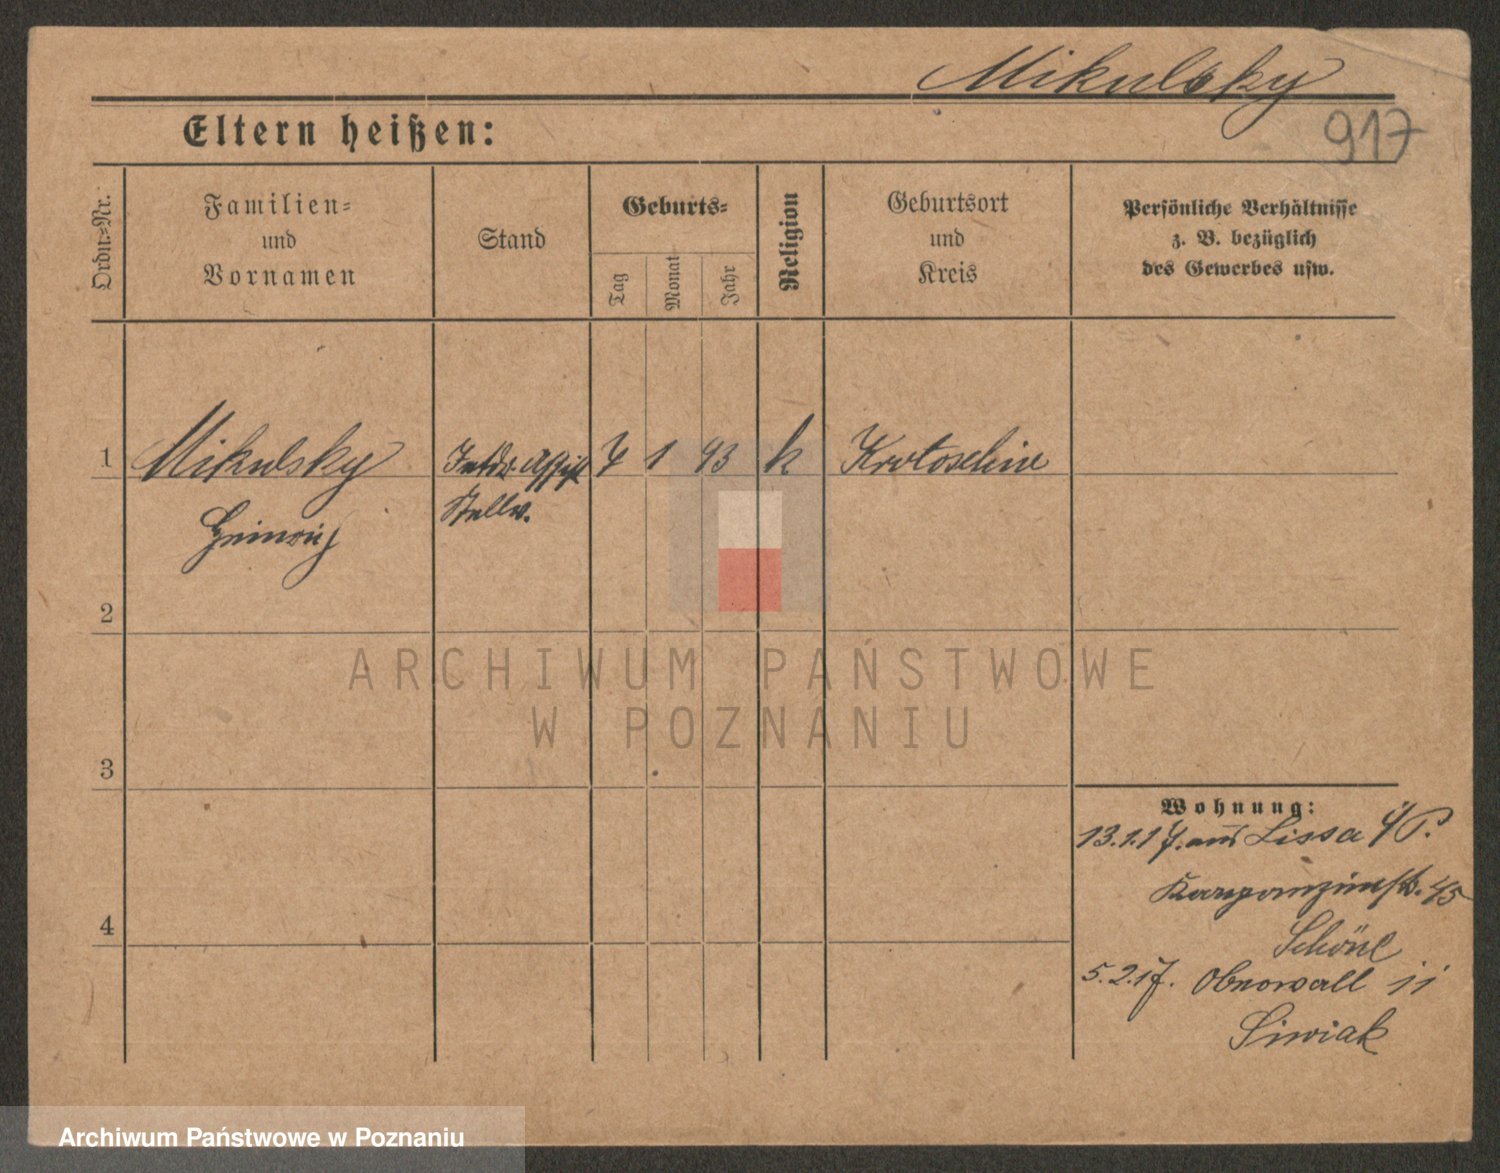 Mikulsky
917
Eltern heißen:
Ordn.-Nr.
Familien-
und
Vornamen
Stand
Geburts-
Tag
Monat
Jahr
Religion
Geburtsort
und
Kreis
Persönliche Verhältnisse
z. B. bezüglich
des Gewerbes usw.
1 Mikulsky 1 93 k Krotoschin
Stellv.
Heinrich
2
3
4
Wohnung:
13.1.17. aus Lissa i/P.
45
Schöne
5.2.17. Oberwall 11
Siwiak
ARCHIWUM PAŃSTWOWE
W POZNANIU
Archiwum Państwowe w Poznaniu